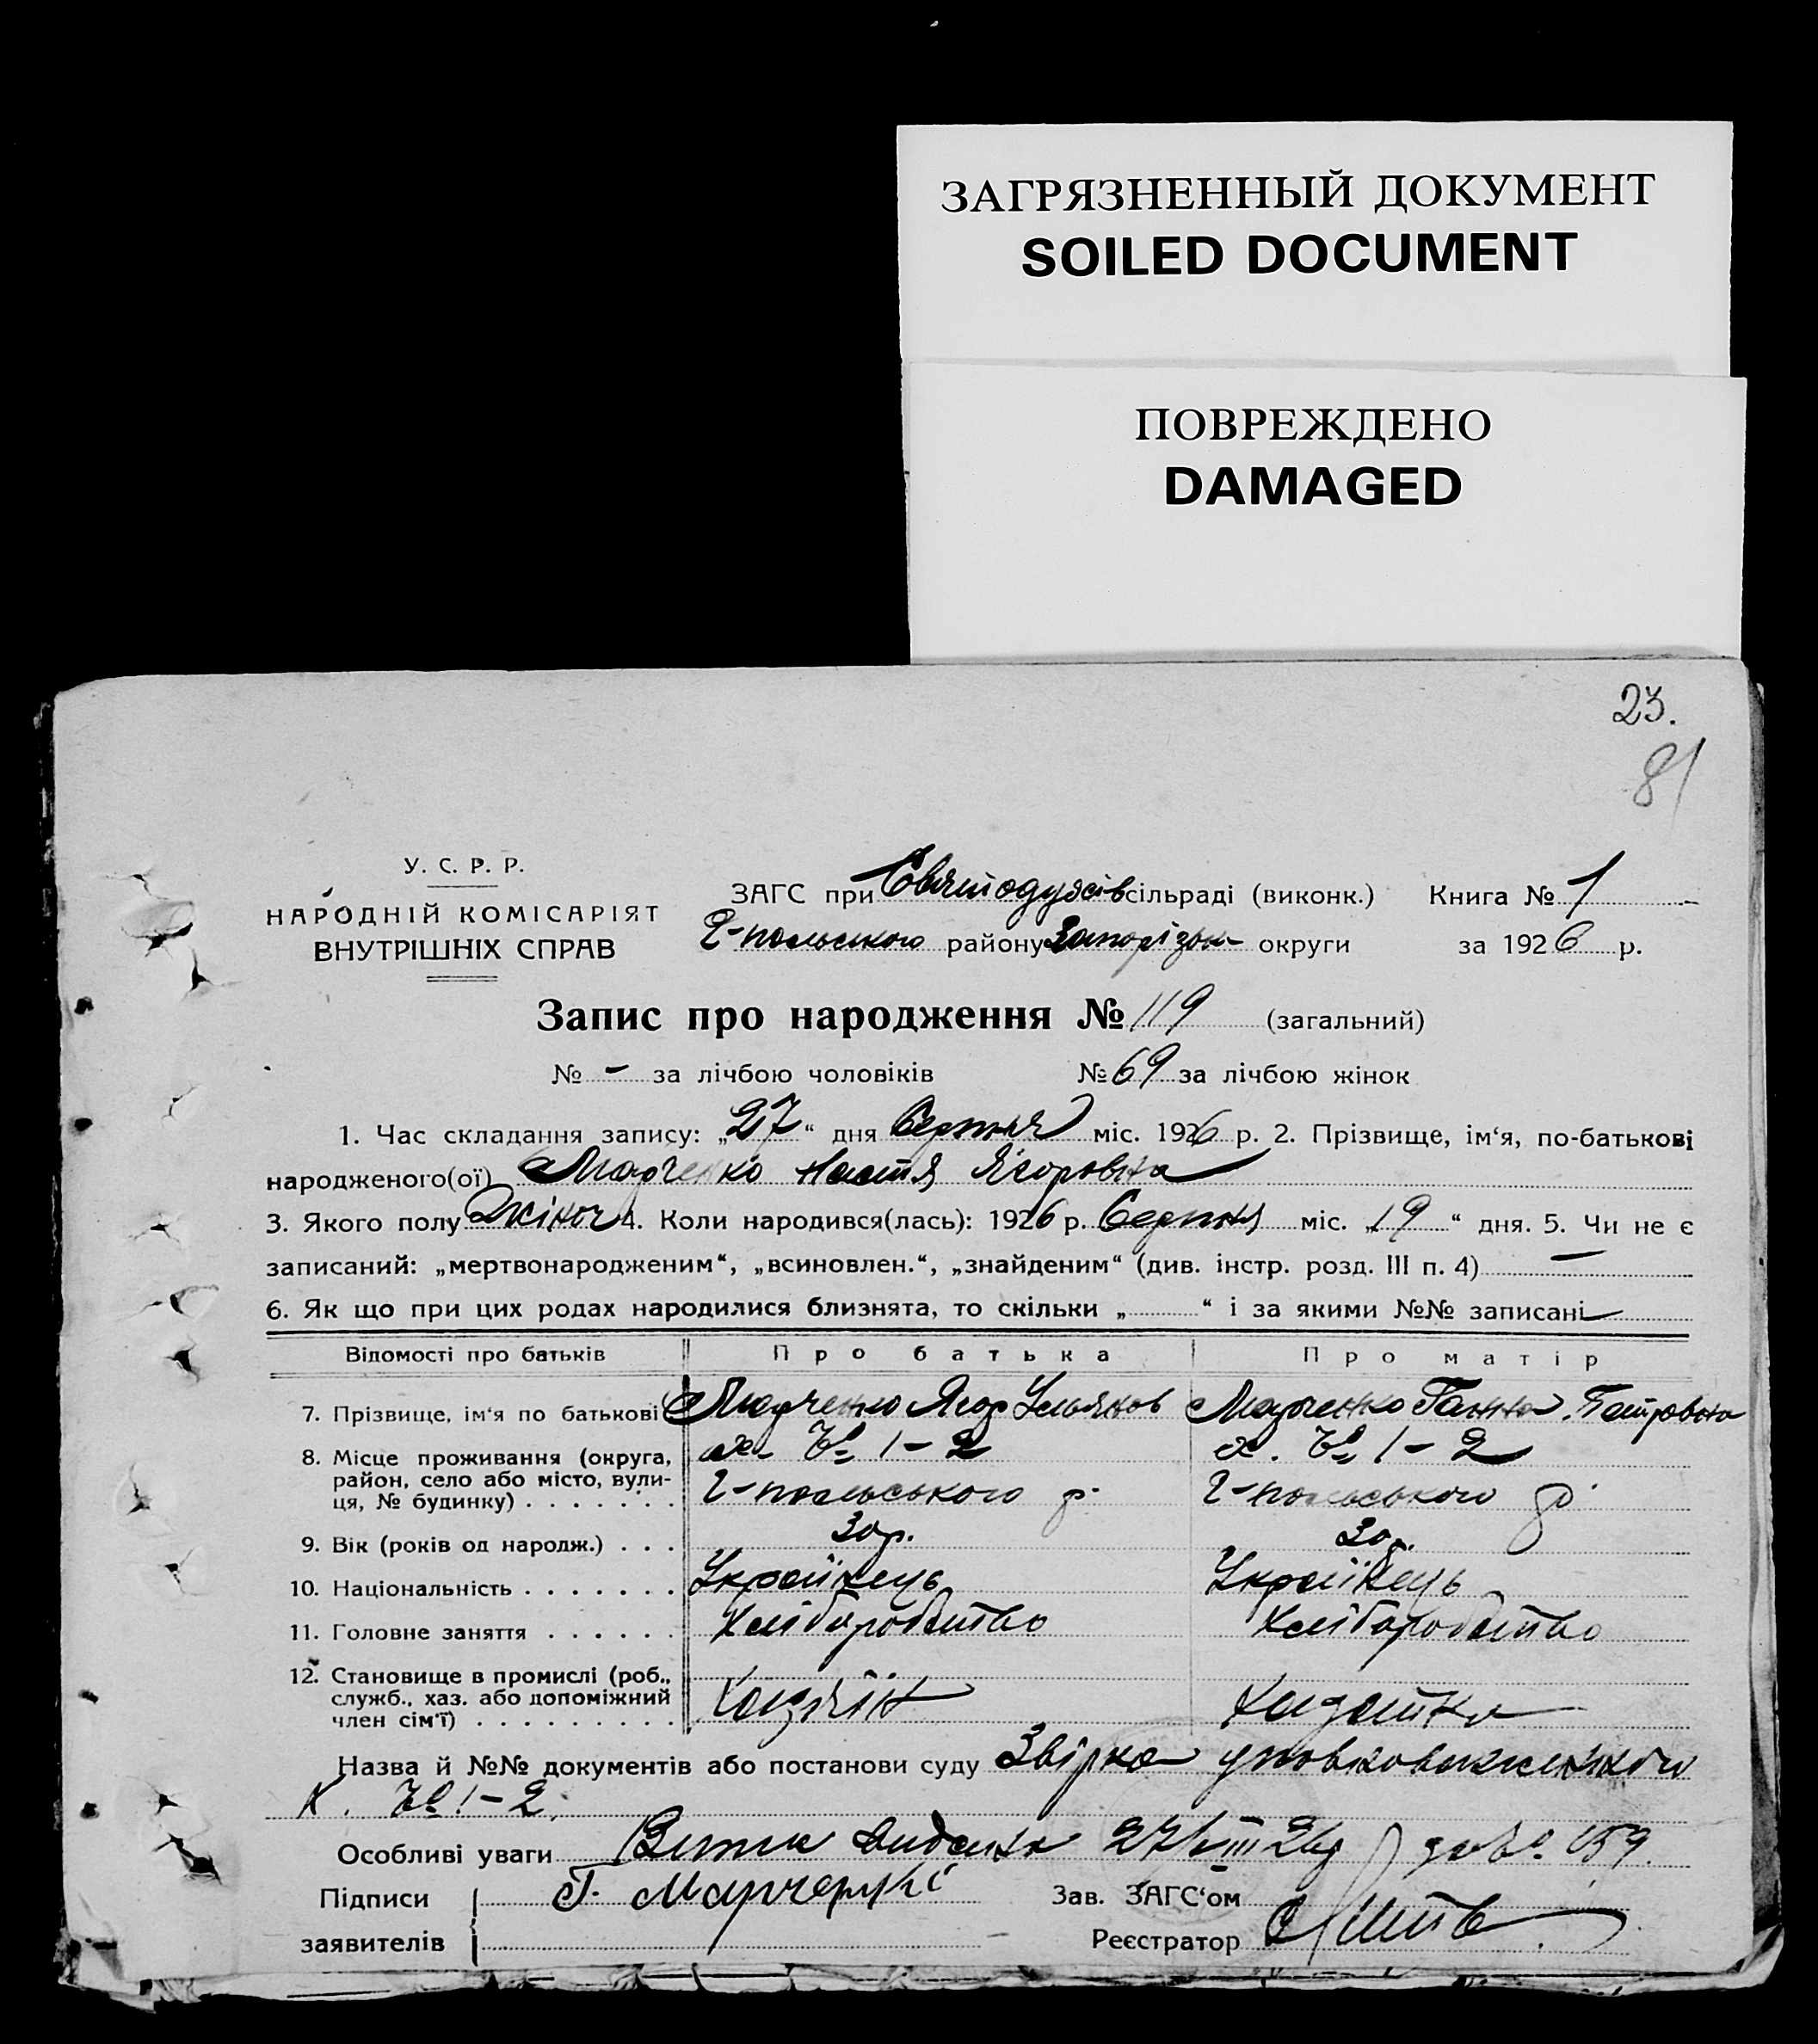 ЗАГРЯЗНЕННЫЙ ДОКУМЕНТ
SOILED DOCUMENT
ПОВРЕЖДЕНО
DAMAGED
23.
81
У. С. Р. Р.
НАРОДНІЙ КОМІСАРІЯТ
ВНУТРІШНІХ СПРАВ
ЗАГС при сільраді (виконк.) Книга № 1
Г-польського району Запорізьк- округи за 1926 р.
Запис про народження № 119 (загальний)
№ - за лічбою чоловіків № 69 за лічбою жінок
1. Час складання запису: „27“ дня Серпня міс. 1926 р. 2. Прізвище, ім‘я, по-батькові
народженого(ої) Марченко Настя Ягоровна
3. Якого полу Жіноч 4. Коли народився(лась): 1926 р. Серпня міс. „19“ дня. 5. Чи не є
записаний: „мертвонародженим“, „всиновлен.“, „знайденим“ (див. інстр. розд. III п. 4) —
6. Як що при цих родах народилися близнята, то скільки „ “ і за якими №№ записані —
Відомості про батьків Про батька Про матір
7. Прізвище, ім‘я по батькові Марченко Ягор Ульянов Марченко Ганна Петровна
8. Місце проживання (округа, х. № 1-2 х. № 1-2
район, село або місто, вули-
ця, № будинку) . . . . . . . Г-польського р. Г-польського р.
9. Вік (років од народж.) . . . 30 р. 30 р.
10. Національність . . . . . . . Українець Українець
11. Головне заняття . . . . . . Хліборобство Хліборобство
12. Становище в промислі (роб.,
служб., хаз. або допоміжний Хазяїн
член сім‘ї) . . . . . . . . .
Назва й №№ документів або постанови суду Звірка уповноваженного
х. № 1-2.
Особливі уваги видана 27/VIII 26 р за № 159.
Підписи
заявителів
Зав. ЗАГС‘ом
Реєстратор